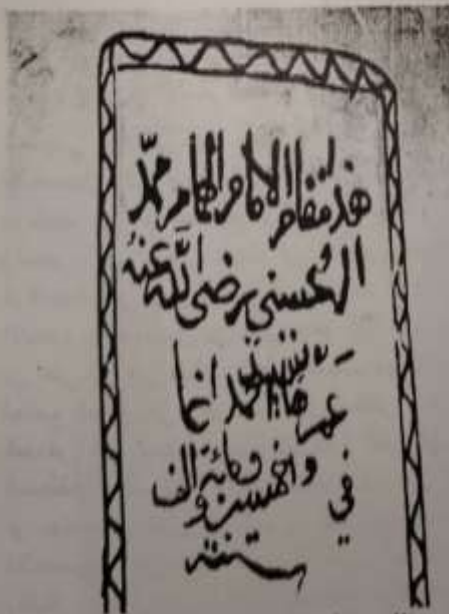 هذا مقام الامام الهمام محمد
الحسني رضي الله عنه
عمر احمد اغا
في وخمسين ومائة والف
سنة